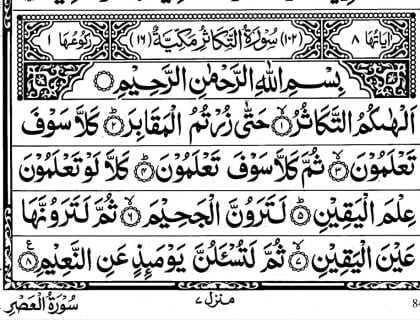 اٰیَاتُهَا ۸ (۱۰۲) سُوْرَةُ التَّكَاثُرِ مَكِّيَّةٌ (۱۶) رُكُوْعُهَا ۱
بِسْمِ اللّٰهِ الرَّحْمٰنِ الرَّحِيْمِ
اَلْهٰىكُمُ التَّكَاثُرُ ۱ حَتّٰى زُرْتُمُ الْمَقَابِرَ ۲ كَلَّا سَوْفَ
تَعْلَمُوْنَ ۳ ثُمَّ كَلَّا سَوْفَ تَعْلَمُوْنَ ۴ كَلَّا لَوْ تَعْلَمُوْنَ
عِلْمَ الْيَقِيْنِ ۵ لَتَرَوُنَّ الْجَحِيْمَ ۶ ثُمَّ لَتَرَوُنَّهَا
عَيْنَ الْيَقِيْنِ ۷ ثُمَّ لَتُسْـَٔلُنَّ يَوْمَئِذٍ عَنِ النَّعِيْمِ ۸
منزل ۷
سُوْرَةُ الْعَصْرِ